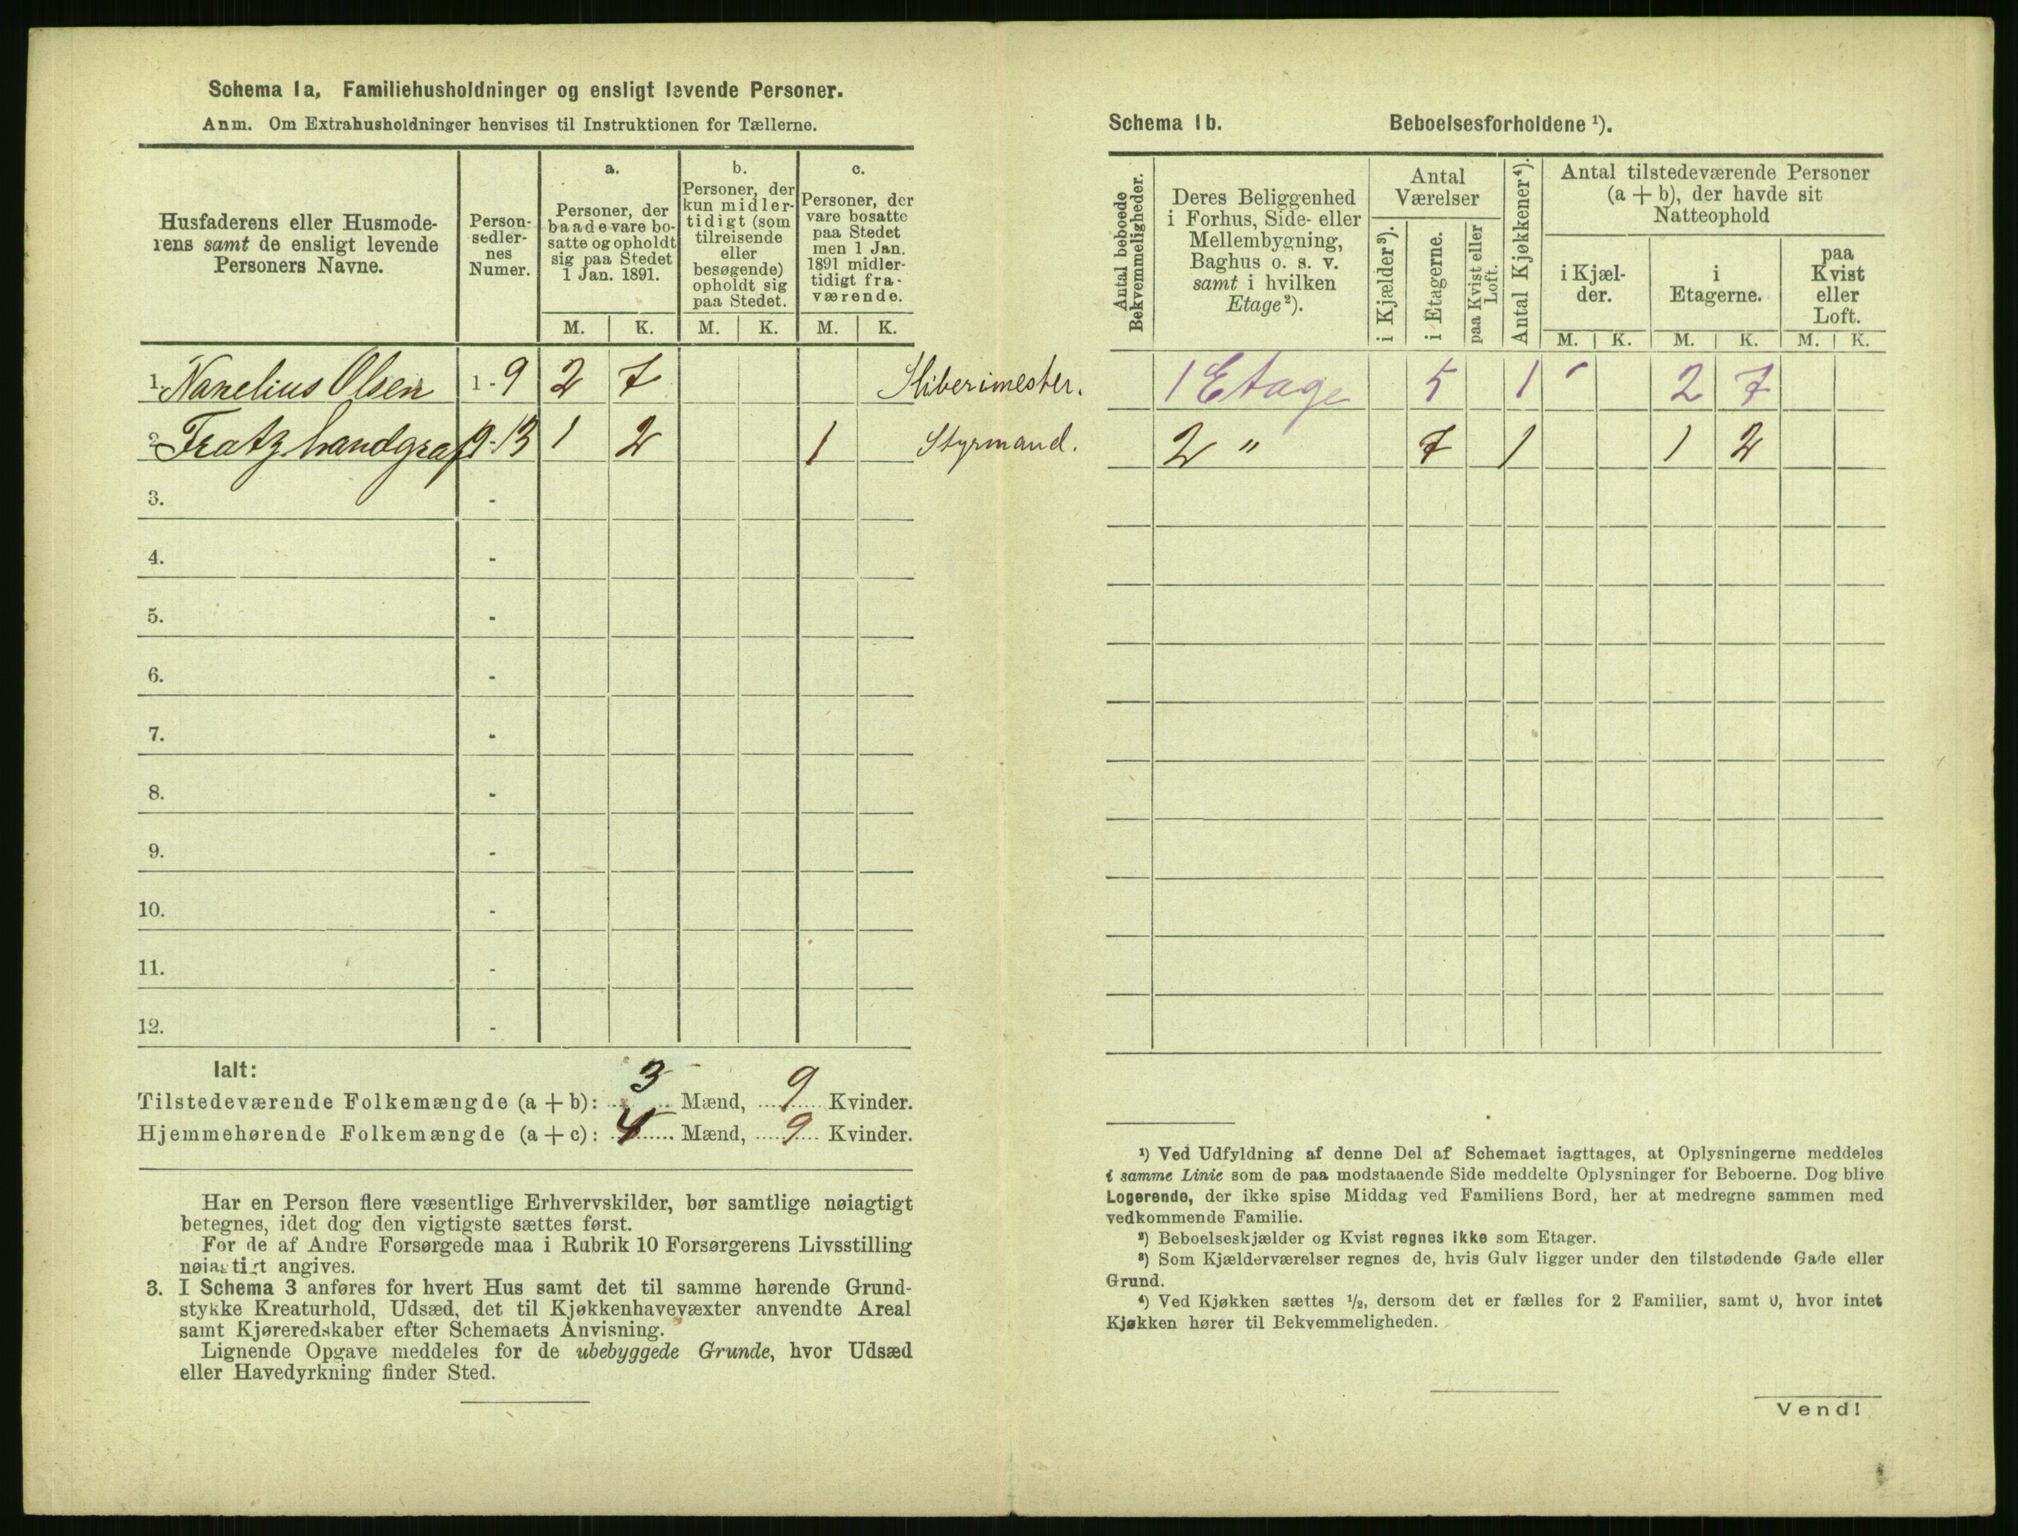 Schema 1a, Familiehusholdninger og ensligt levende Personer.
Anm. Om Extrahusholdninger henvises til Instruktionen for Tællerne.
Husfaderens eller Husmode-
rens samt de ensligt levende
Personers Navne.
Person-
sedler-
nes
Numer.
a.
Personer, der
baade vare bo-
satte og opholdt
sig paa Stedet
1 Jan. 1891.
b.
Personer, der
kun midler-
tidigt (som
tilreisende
eller
besøgende)
opholdt sig
paa Stedet.
c.
Personer, der
vare bosatte
paa Stedet
men 1 Jan.
1891 midler-
tidigt fra-
værende.
M. K. M. K. M. K.
1. Nanelius Olsen 1 - 9 2 7
2. 9 - 13 1 2 1 Styrmand.
3. -
4. -
5. -
6. -
7. -
8. -
9. -
10. -
11. -
12. -
Ialt:
Tilstedeværende Folkemængde (a + b): 3 Mænd, 9 Kvinder.
Hjemmehørende Folkemængde (a + c): 4 Mænd, 9 Kvinder.
Har en Person flere væsentlige Erhvervskilder, bør samtlige nøiagtigt
betegnes, idet dog den vigtigste sættes først.
For de af Andre Forsørgede maa i Rubrik 10 Forsørgerens Livsstilling
nøiagtigt angives.
3. I Schema 3 anføres for hvert Hus samt det til samme hørende Grund-
stykke Kreaturhold, Udsæd, det til Kjøkkenhavevæxter anvendte Areal
samt Kjøreredskaber efter Schemaets Anvisning.
Lignende Opgave meddeles for de ubebyggede Grunde, hvor Udsæd
eller Havedyrkning finder Sted.
Schema 1b. Beboelsesforholdene ¹).
Antal beboede
Bekvemmeligheder.
Deres Beliggenhed
i Forhus, Side- eller
Mellembygning,
Baghus o. s. v.
samt i hvilken
Etage²).
Antal
Værelser
i Kjælder³).
i Etagerne.
paa Kvist eller
Loft.
Antal Kjøkkener⁴).
Antal tilstedeværende Personer
(a + b), der havde sit
Natteophold
i Kjæl-
der.
i
Etagerne.
paa
Kvist
eller
Loft.
M. K. M. K. M. K.
1 Etage 5 1 2 7
2 " 7 1 1 2
¹) Ved Udfyldning af denne Del af Schemaet iagttages, at Oplysningerne meddeles
i samme Linie som de paa modstaaende Side meddelte Oplysninger for Beboerne. Dog blive
Logerende, der ikke spise Middag ved Familiens Bord, her at medregne sammen med
vedkommende Familie.
²) Beboelseskjælder og Kvist regnes ikke som Etager.
³) Som Kjælderværelser regnes de, hvis Gulv ligger under den tilstødende Gade eller
Grund.
⁴) Ved Kjøkken sættes ½, dersom det er fælles for 2 Familier, samt 0, hvor intet
Kjøkken hører til Bekvemmeligheden.
Vend!